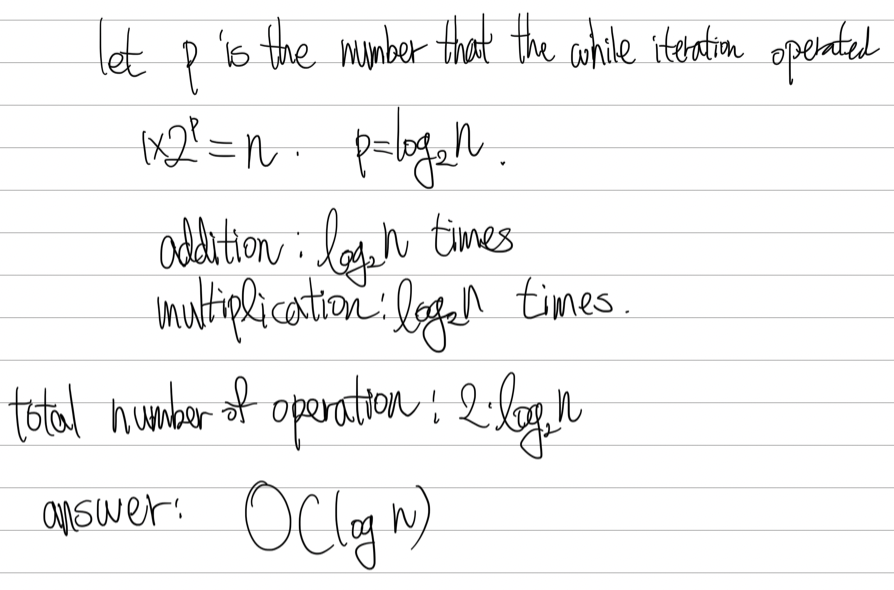 let p is the number that the while iteration operated
1×2ᵖ = n . p=log₂n .
addition : log₂n times
multiplication : log₂n times .
total number of operation : 2·log₂n
answer : O(log n)